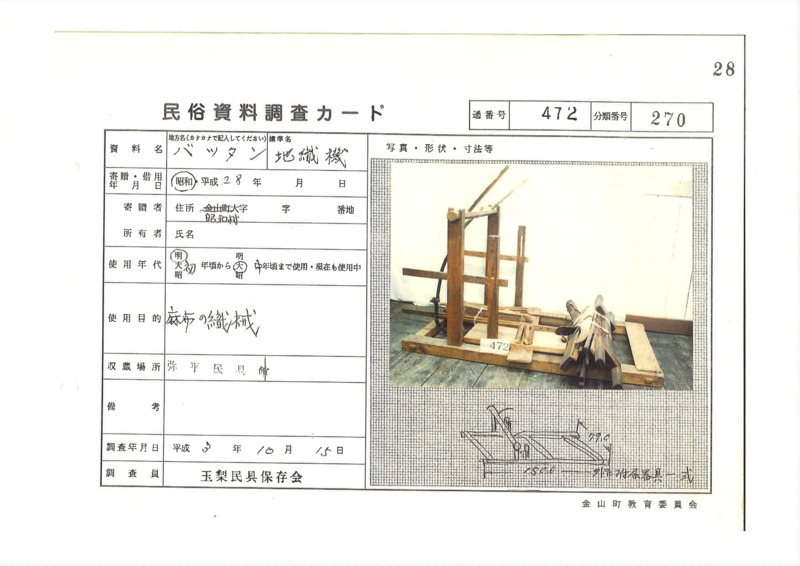 28
民俗資料調査カード
通番号 472 分類番号 270
資料名 地方名(カタカナで記入してください) 標準名
バッタン 地織機
寄贈・借用年月日 昭和・平成 28年 月 日
寄贈者 住所 金山町大字 字 番地
昭和村
所有者 氏名
使用年代 明大昭 初 年頃から 明大昭 中 年頃まで使用・現在も使用中
使用目的 麻布の織機械
収蔵場所 弥平民具館
備考
調査年月日 平成 3年 10月 15日
調査員 玉梨民具保存会
写真・形状・寸法等
472
79.0
150.0
附属器具一式
金山町教育委員会